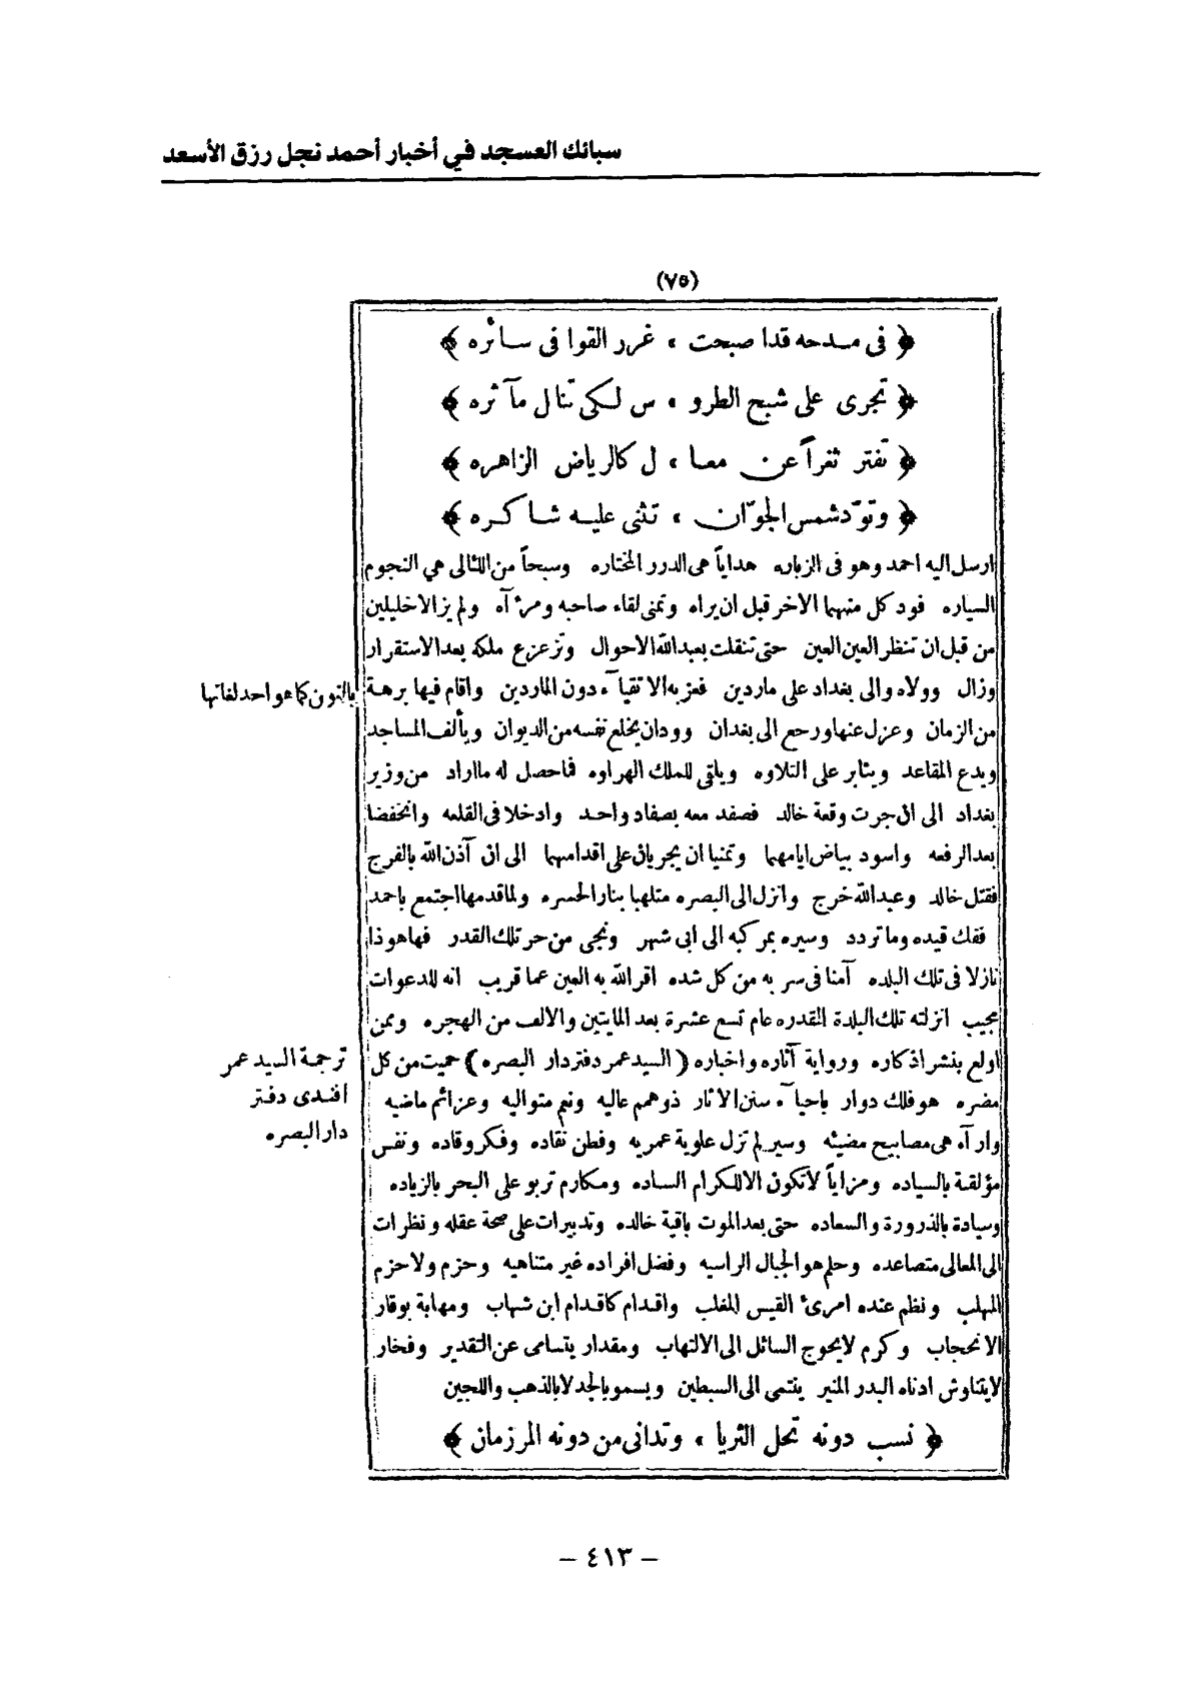 سبائك العسجد في أخبار أحمد نجل رزق الأسعد
(٧٥)
﴿ فى مدحه قدا صبحت ، غرر القوا فى سائره ﴾
﴿ تجرى على شبح الطرو ، س لكى تنال مآثره ﴾
﴿ تفتر ثغراً عن معا ، ل كالرياض الزاهره ﴾
﴿ وتودّ شمس الجوّ ان ، تثنى عليه شاكره ﴾
ارسل اليه احمد وهو فى الزباره هداياً هى الدرر المختاره وسبحاً من اللئالى هي النجوم
السياره فود كل منهما الاخر قبل ان يراه وتمنى لقاء صاحبه ومرءآه ولم يزالا خليلين
من قبل ان تنظر العين العين حتى تنقلت بعبدالله الاحوال وتزعزع ملكه بعد الاستقرار
وزال وولاه والى بغداد على ماردين فعز به الاتقيآء دون الماردين واقام فيها برهة
بالنون كما هو احد لغاتها
من الزمان وعزل عنها ورجع الى بغدان وودان يخلع نفسه من الديوان ويألف المساجد
ويدع المقاعد ويثابر على التلاوه ويلقى للملك الهراوه فما حصل له ما اراد من وزير
بغداد الى ان جرت وقعة خالد فصفد معه بصفاد واحد وادخلا فى القلعه وانخفضا
بعد الرفعه واسود بياض ايامهما وتمنيا ان يجريان على اقدامهما الى ان آذن الله بالفرج
فقتل خالد وعبدالله خرج وانزل الى البصره متلهبا بنار الحسره ولما قدمها اجتمع باحمد
ففك قيده وما تردد وسيره بمركبه الى ابى شهر ونجى من حر تلك القدر فها هو ذا
نازلا فى تلك البلده آمنا فى سربه من كل شده اقر الله به العين عما قريب انه للدعوات
مجيب انزلته تلك البلدة القدره عام تسع عشرة بعد المايتين والالف من الهجره وممن
اولع بنشر اذكاره ورواية آثاره واخباره ( السيد عمر دفتردار البصره ) حميت من كل
ترجمة السيد عمر
افندى دفتر
دار البصره
مضره هو فلك دوار باحيآء سنن الاثار ذو همم عاليه ونعم متواليه وعزائم ماضيه
وارآء هى مصابيح مضيئه وسير لم تزل علوية عمريه وفطن نقاده وفكر وقاده ونفس
مؤلقة بالسياده ومزاياً لا تكون الا للكرام الساده ومكارم تربو على البحر بالزياده
وسيادة بالذرورة والسعاده حتى بعد الموت باقية خالده وتدبيرات على صحة عقله ونظرات
الى المعالى متصاعده وحلم هو الجبال الراسيه وفضل افراده غير متناهيه وحزم ولا حزم
المهلب ونظم عنده امرئ القيس المغلب واقدام كاقدام ابن شهاب ومهابة بوقار
الانحجاب وكرم لا يحوج السائل الى الالتهاب ومقدار يتسامى عن التقدير وفخار
لا يتناوش ادناه البدر المنير ينتمى الى السبطين ويسمو بالجد لا بالذهب واللجين
﴿ نسب دونه تحل الثريا ، وتدانى من دونه المرزمان ﴾
– ٤١٣ –